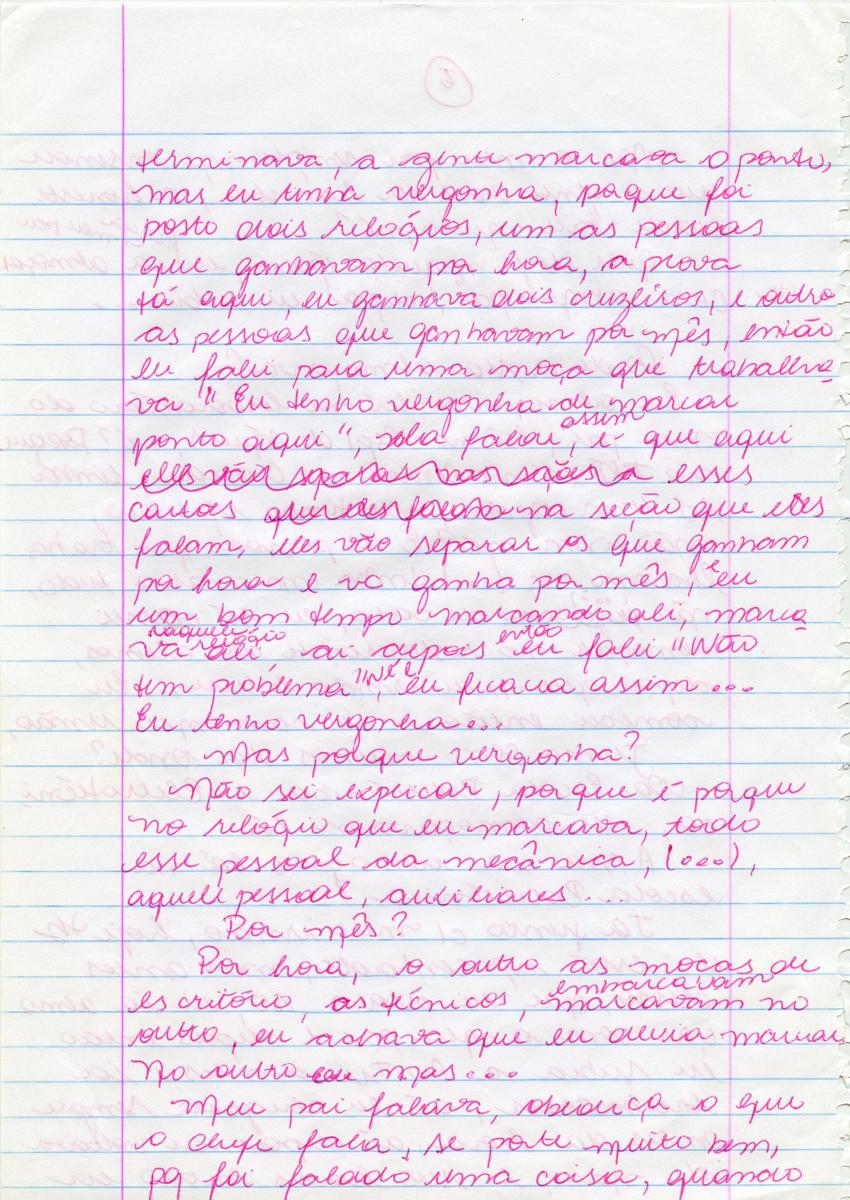 terminava, a gente marcava o ponto,
mas eu tinha vergonha, porque foi
posto dois relógios, um as pessoas
que ganhavam por hora, a prova
tá aqui, eu ganhava dois cruzeiros, e outro
as pessoas que ganhavam por mês, então
eu falei para uma moça que trabalha
va "Eu tenho vergonha de marcar
ponto aqui", ela falou, assim é que aqui
eles vão separar nas seções a esses
cartões na seção que eles
falam, eles vão separar os que ganham
por hora e vc ganha por mês, e eu
um bom tempo marcando ali, marca
va ali naquele relógio aí depois então eu falei "Não
tem problema", "Né", eu ficava assim...
Eu tenho vergonha...
Mas porque vergonha?
Não sei explicar, porque é porque
no relógio que eu marcava, todo
esse pessoal da mecânica, (...),
aquele pessoal, auxiliares....
Por mês?
Por hora, o outro as moças de
escritório, as técnicos, embarcavam marcavam no
outro, eu achava que eu devia marcar
no outro mas...
Meu pai falava, obedeça o que
o chefe fala, se porte muito bem,
pq foi falado uma coisa, quando